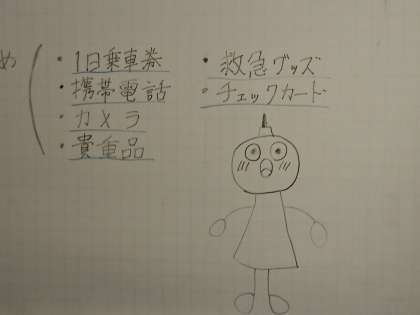 め
・1日乗車券
・携帯電話
・カメラ
・貴重品
・救急グッズ
・チェックカード